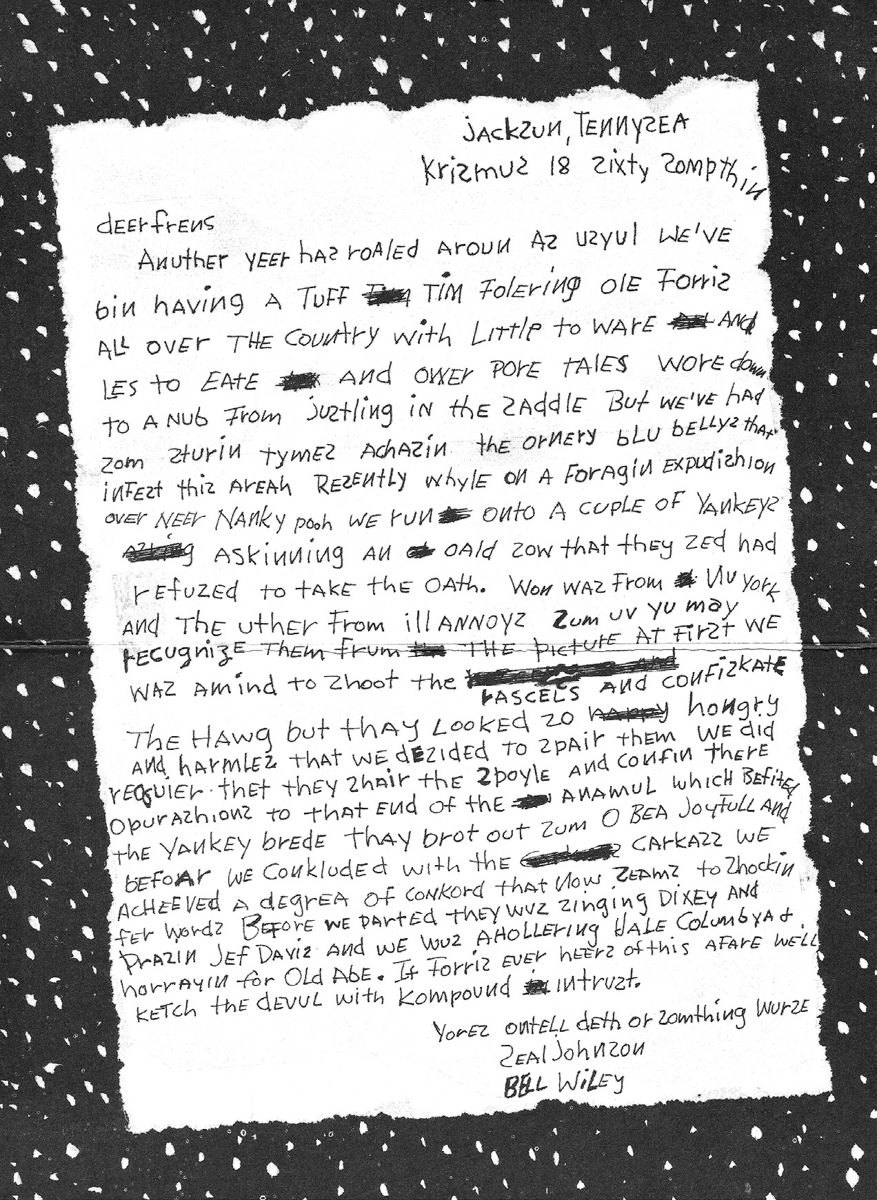 JACKSUN, TENNYSEA
KRISMUS 18 SIXTY SOMPTHIN
dEER FRENS
ANUTHER YEER HAS ROALED AROUN AS USYUL WE'VE
biN HAVING A TUFF TIM FOLERING OLE FORRIS
ALL OVER THE COUNTRY WITH LITTLE TO WARE AND
LES TO EATE AND OWER PORE TALES WORE dOWN
TO A NUB FROM JUSTLING IN THE SADDLE BUT WE'VE HAD
SOM STURIN TYMES ACHASIN THE ORNERY bLU bELLYS THAT
INFEST THIS AREAH RESENTLY WHYLE ON A FORAGIN EXPUDISHION
OVER NEER NANKY POOH WE RUN ONTO A CUPLE OF YANKEYS
ASKINNING AN OALD SOW THAT THEY SED HAD
REFUSED TO TAKE THE OATH. WON WAS FROM NU YORK
AND THE UTHER FROM ILLANNOYS SUM UV YU MAY
RECUGNIZE THEM FRUM THE PICTURE AT FIRST WE
WAS AMIND TO SHOOT THE RASCELS AND CONFISKATE
THE HAWG BUT THAY LOOKED SO HONGRY
AND HARMLES THAT WE DESIDED TO SPAIR THEM WE DID
REQUIER THET THEY SHAIR THE SPOYLE AND CONFIN THERE
OPURASHIONS TO THAT END OF THE ANAMUL WHICH BEFITED
THE YANKEY BREDE THAY BROT OUT SUM O BEA JOYFULL AND
BEFOAR WE CONKLUDED WITH THE CARKASS WE
ACHEEVED A DEGREA OF CONKORD THAT NOW SEAMS TO SHOCKIN
FER WORDS BEFORE WE PARTED THEY WUS SINGING DIXEY AND
PRASIN JEF DAVIS AND WE WUS AHOLLERING HALE COLUMBYA &
HORRAYIN FOR OLD ABE. If FORRIS EVER HEERS OF THIS AFARE WELL
KETCH THE DEVUL WITH KOMPOUND INTRUST.
YORES ONTELL DETH OR SOMTHING WURSE
SEAL JOHNSON
BELL WILEY